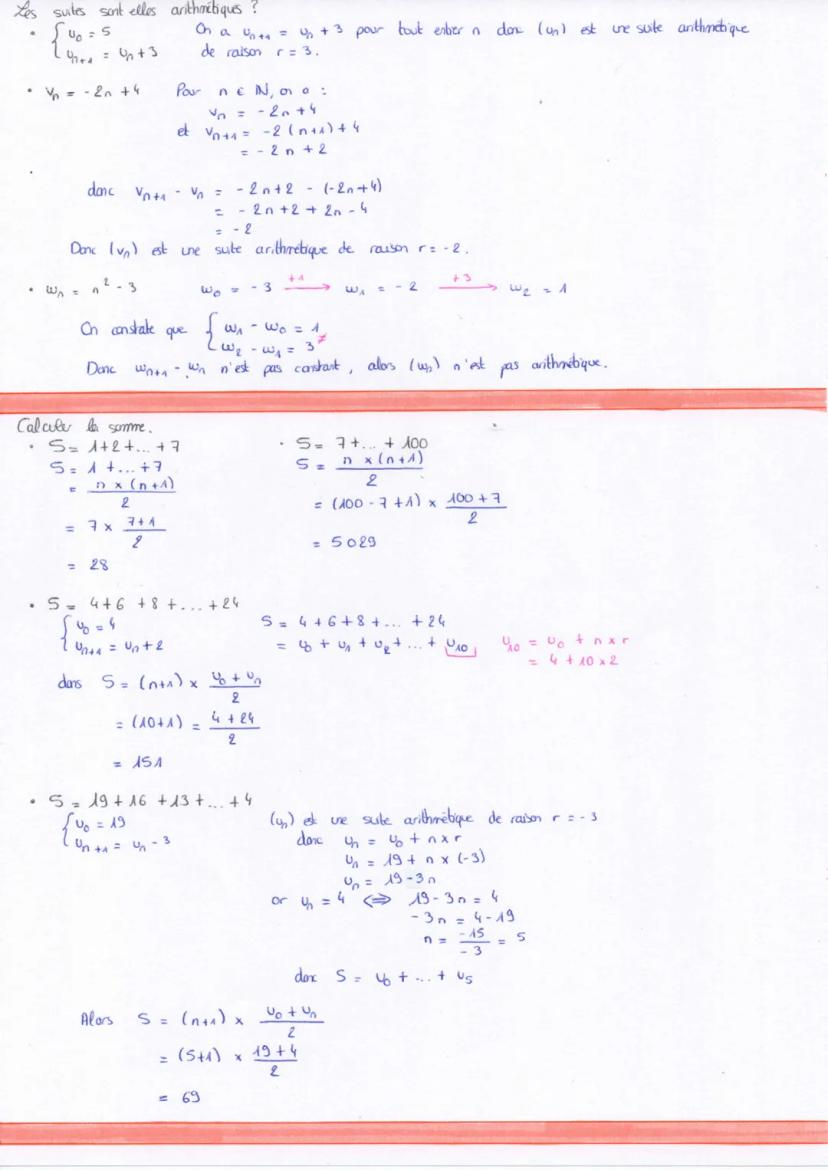 Les suites sont elles arithmétiques ?
• { u₀ = 5 On a uₙ₊₁ = uₙ + 3 pour tout entier n donc (uₙ) est une suite arithmétique
uₙ₊₁ = uₙ + 3 de raison r = 3.
• vₙ = -2n + 4 Pour n ∈ ℕ, on a :
vₙ = -2n + 4
et vₙ₊₁ = -2(n+1) + 4
= -2n + 2
donc vₙ₊₁ - vₙ = -2n+2 - (-2n+4)
= -2n+2 + 2n - 4
= -2
Donc (vₙ) est une suite arithmétique de raison r = -2.
• wₙ = n² - 3 w₀ = -3 +1→ w₁ = -2 +3→ w₂ = 1
On constate que { w₁ - w₀ = 1
≠
w₂ - w₁ = 3
Donc wₙ₊₁ - wₙ n'est pas constant, alors (wₙ) n'est pas arithmétique.
Calculer la somme.
• S = 1+2+...+7 • S = 7+...+100
S = 1 +...+7 S = n×(n+1)/2
= n×(n+1)/2 = (100-7+1) × (100+7)/2
= 7 × (7+1)/2 = 5029
= 28
• S = 4+6+8+...+24
{ u₀ = 4 S = 4+6+8+...+24
uₙ₊₁ = uₙ+2 = u₀ + u₁ + u₂ + ... + u₁₀ u₁₀ = u₀ + n×r
= 4 + 10×2
dans S = (n+1) × (u₀ + uₙ)/2
= (10+1) = (4+24)/2
= 151
• S = 19+16+13+...+4
{ u₀ = 19 (uₙ) est une suite arithmétique de raison r = -3
uₙ₊₁ = uₙ - 3 donc uₙ = u₀ + n×r
uₙ = 19 + n × (-3)
uₙ = 19 - 3n
or uₙ = 4 ⇔ 19 - 3n = 4
-3n = 4 - 19
n = -15/-3 = 5
donc S = u₀ + ... + u₅
Alors S = (n+1) × (u₀ + uₙ)/2
= (5+1) × (19+4)/2
= 69